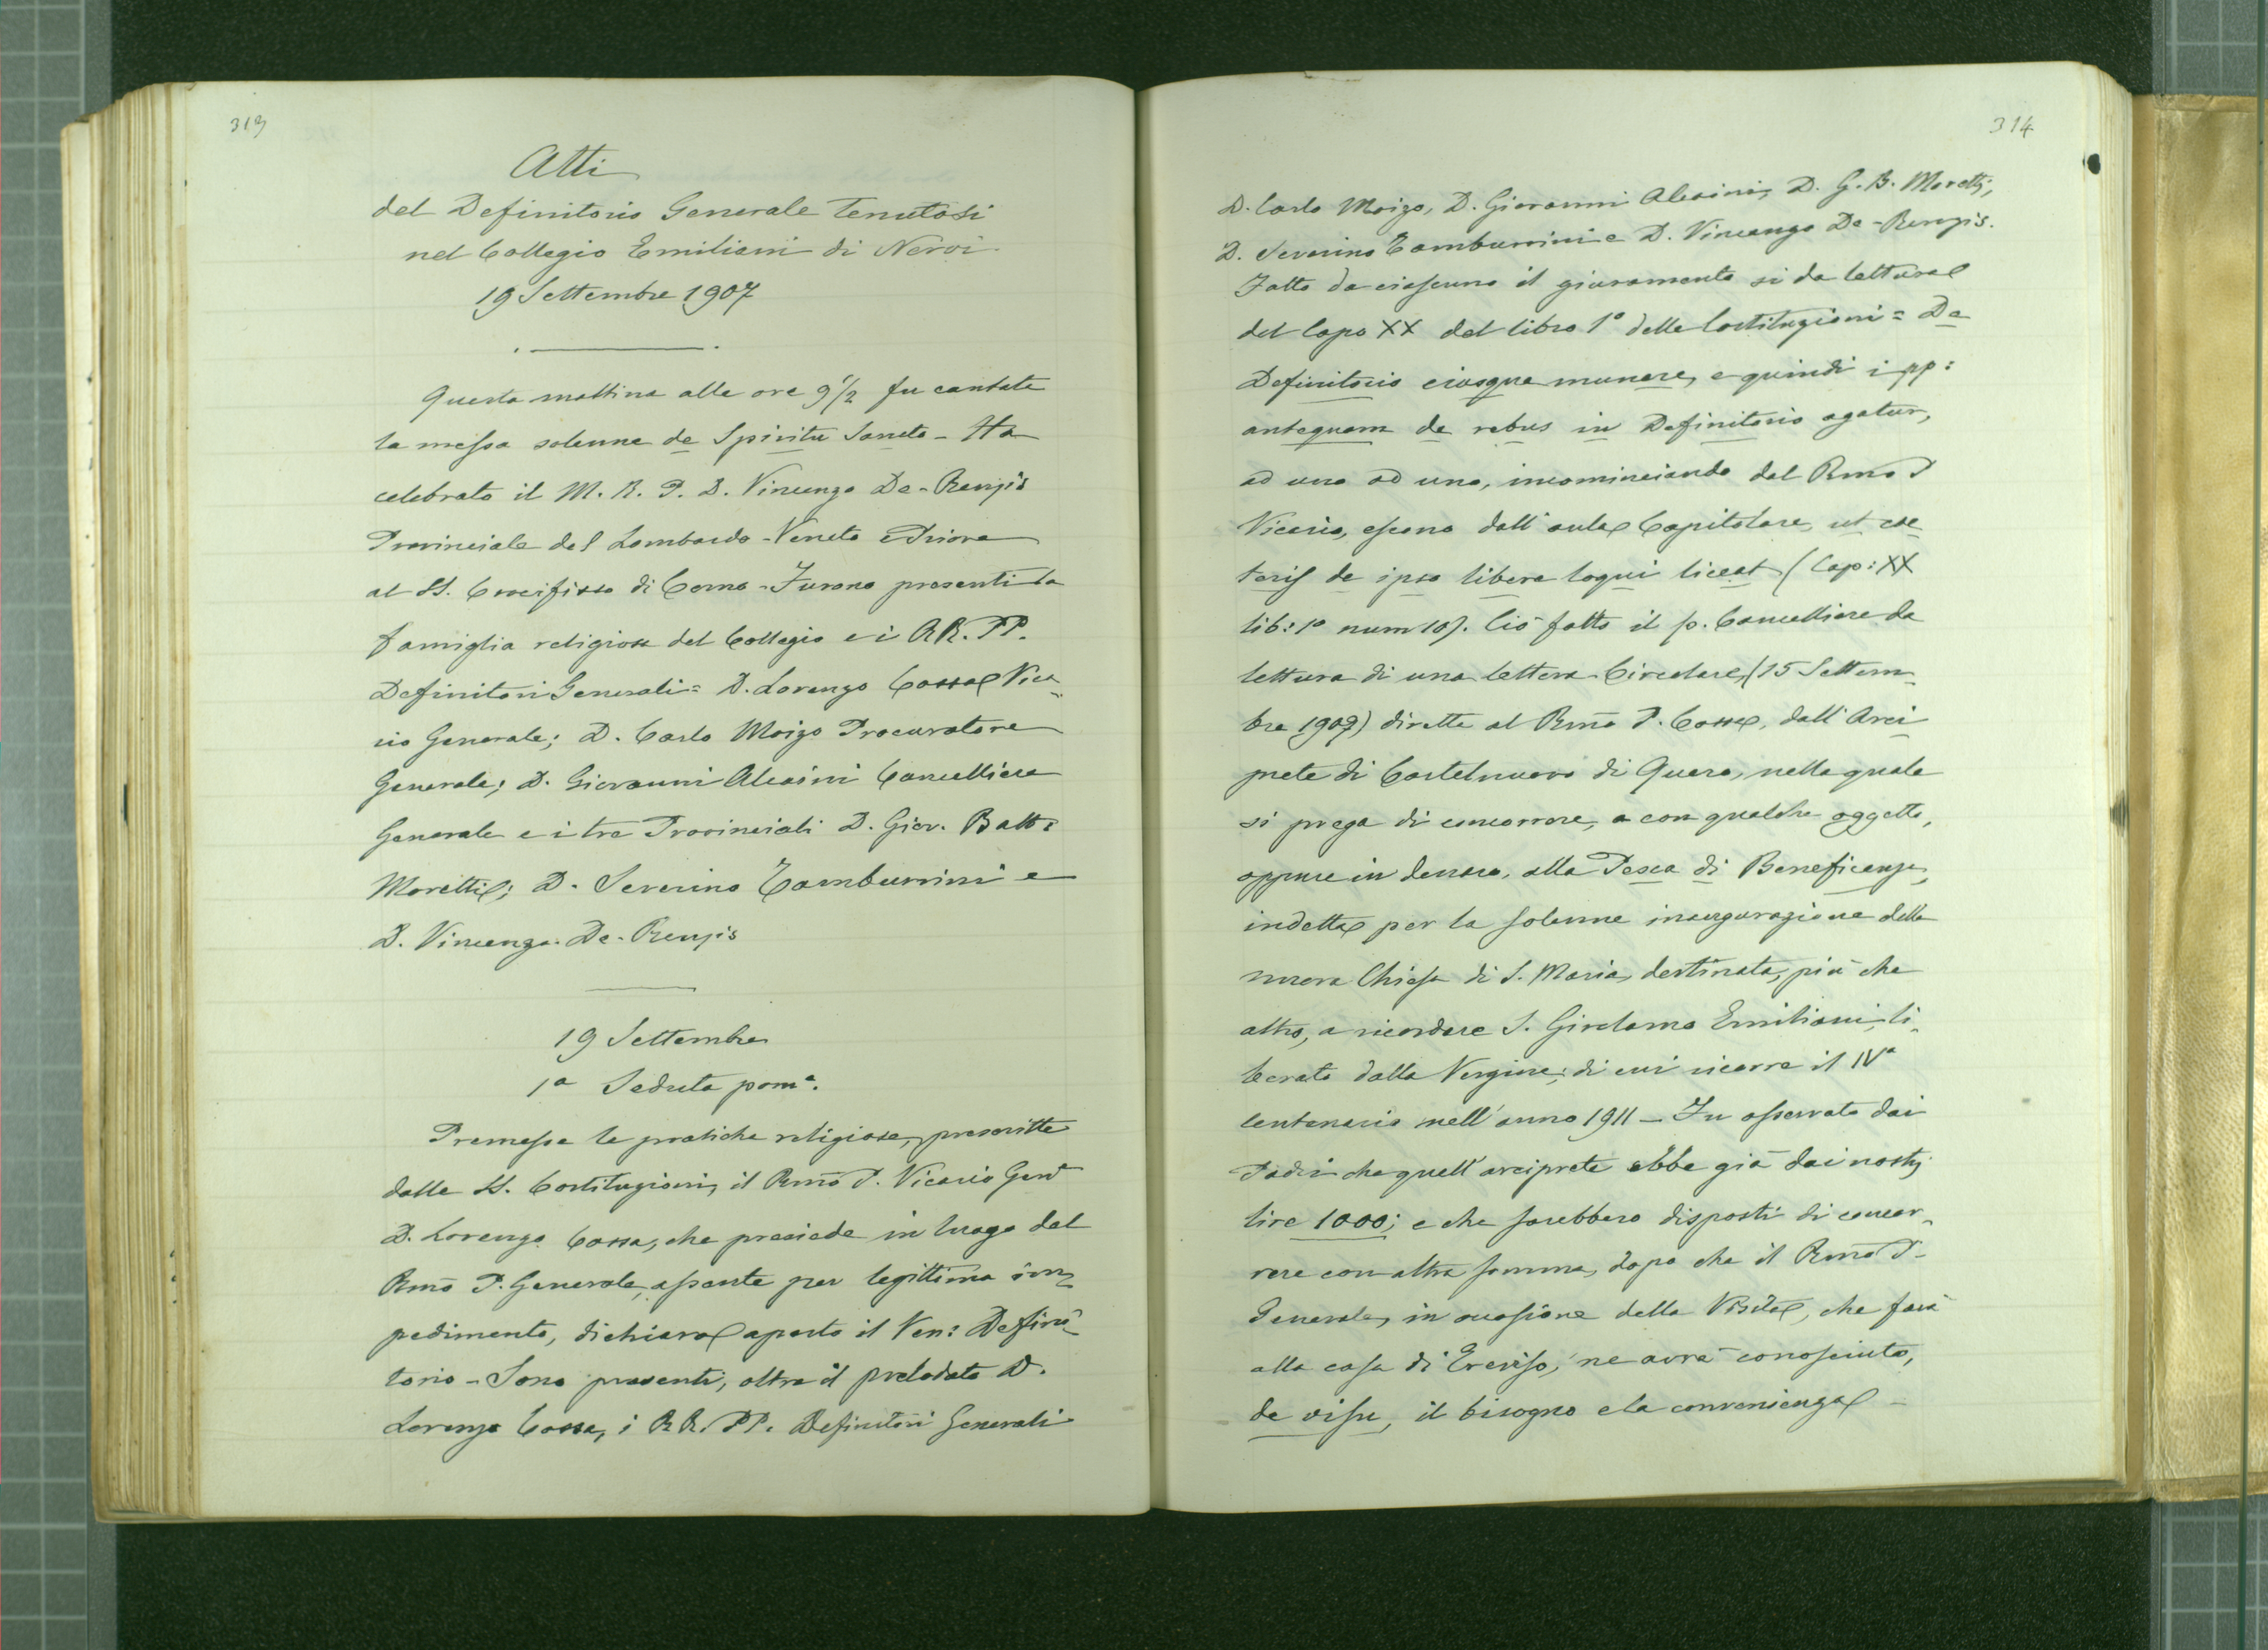 313
Atti
del Definitorio Generale tenutosi
nel Collegio Emiliani di Nervi
19 Settembre 1907
Questa mattina alle ore 9 1/2 fu cantata
la messa solenne de Spiritu Sancto - Ha
celebrato il M. R. P. D. Vincenzo De-Renzis
Provinciale del Lombardo-Veneto e Priore
al SS. Crocifisso di Como - Furono presenti la
famiglia religiosa del Collegio e i RR. PP.
Definitori Generali = D. Lorenzo Cossa Vica-
rio Generale; D. Carlo Moizo Procuratore
Generale; D. Giovanni Alcaini Cancelliere
Generale e i tre Provinciali D. Giov. Batt:
Moretti; D. Severino Tamburrini e
D. Vincenzo De-Renzis
19 Settembre
1a Seduta pom.a
Premesse le pratiche religiose, prescritte
dalle SS. Costituzioni, il Rmo P. Vicario Genl
D. Lorenzo Cossa, che presiede in luogo del
Rmo P. Generale, assente per legittimo im-
pedimento, dichiara aperto il Ven: Defini-
torio - Sono presenti, oltre il prelodato D.
Lorenzo Cossa, i RR. PP. Definitori Generali
314
D. Carlo Moizo, D. Giovanni Alcaini, D. G. B. Moretti,
D. Severino Tamburrini e D. Vincenzo De-Renzis.
Fatto da ciascuno il giuramento si da lettura
del Capo XX del libro 1° delle Costituzioni = De
Definitorio eiusque munere, e quindi i pp:
antequam de rebus in Definitorio agatur,
ad uno ad uno, incominciando dal Rmo P
Vicario, escono dall'aula Capitolare, ut cae
teris de ipso libere loqui liceat (Cap: XX
lib: 1° num 10). Ciò fatto il p. Cancelliere da
lettura di una lettera Circolare, (15 Settem-
bre 1907) diretta al Rmo P. Cossa, dall'Arci
prete di Castelnuovo di Quero, nella quale
si prega di concorrere, o con qualche oggetto,
oppure in denaro, alla Pesca di Beneficenza,
indetta per la solenne inaugurazione della
nuova Chiesa di S. Maria, destinata, più che
altro, a ricordare S. Girolamo Emiliani, li-
berato dalla Vergine; di cui ricorre il IV°
Centenario nell'anno 1911 - Fu osservato dai
Padri che quell'arciprete ebbe già dai nostri
lire 1000; e che sarebbero disposti di concor-
rere con altra somma, dopo che il Rmo P.
Generale, in occasione della Visita, che farà
alla casa di Treviso, ne avrà conosciuto,
de visu, il bisogno e la convenienza -